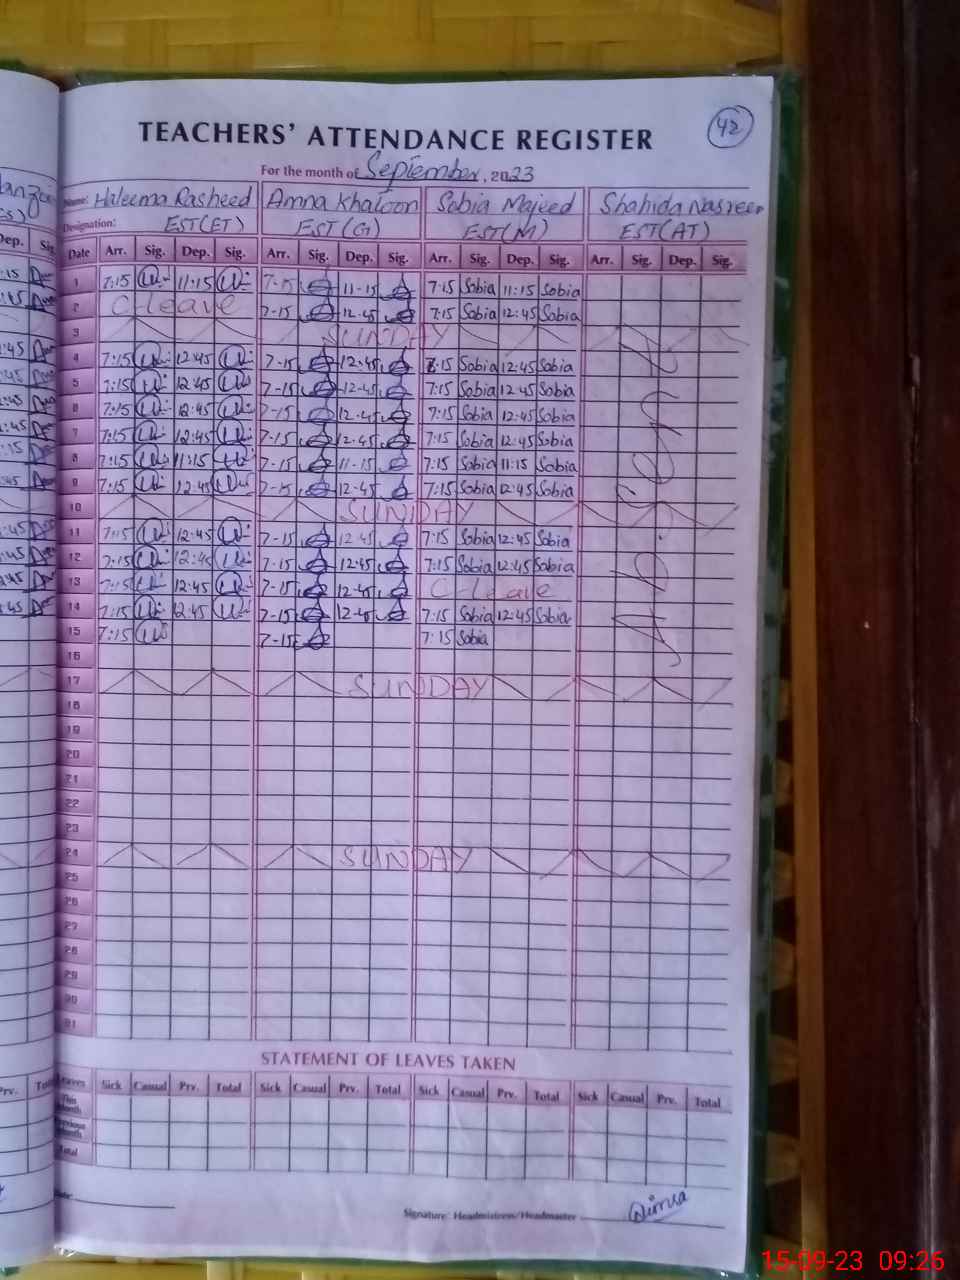 TEACHERS' ATTENDANCE REGISTER
42
For the month of September, 2023
Name: Haleema Rasheed Amna Khatoon Sobia Majeed Shahida Nasreen
Designation: EST(ET) EST(G) EST(M) EST(AT)
Dep. Sig. Date Arr. Sig. Dep. Sig. Arr. Sig. Dep. Sig. Arr. Sig. Dep. Sig. Arr. Sig. Dep. Sig.
1 7:15 11:15 7-15 11-15 7:15 Sobia 11:15 Sobia
2 C leave 7-15 12-45 7:15 Sobia 12:45 Sobia
3 SUNDAY
4 7:15 12:45 7-15 12:45 7:15 Sobia 12:45 Sobia
5 7:15 12:45 7-15 12-45 7:15 Sobia 12:45 Sobia
6 7:15 12:45 7-15 12-45 7:15 Sobia 12:45 Sobia
7 7:15 12:45 7-15 12-45 7:15 Sobia 12:45 Sobia
8 7:15 11:15 7-15 11-15 7:15 Sobia 11:15 Sobia
9 7:15 12:45 7-15 12-45 7:15 Sobia 12:45 Sobia
10 SUNDAY
11 7:15 12:45 7-15 12:45 7:15 Sobia 12:45 Sobia
12 7:15 12:45 7-15 12:45 7:15 Sobia 12:45 Sobia
13 7:15 12:45 7-15 12-45 C-leave
14 7:15 12:45 7-15 12-45 7:15 Sobia 12:45 Sobia
15 7:15 7-15 7:15 Sobia
16
17 SUNDAY
18
19
20
21
22
23
24 SUNDAY
25
26
27
28
29
30
31
Absent
STATEMENT OF LEAVES TAKEN
Leaves Sick Casual Prv. Total Sick Casual Prv. Total Sick Casual Prv. Total Sick Casual Prv. Total
This Month
Previous Month
Total
Date:
Signature: Headmistress/Headmaster
15-09-23 09:26